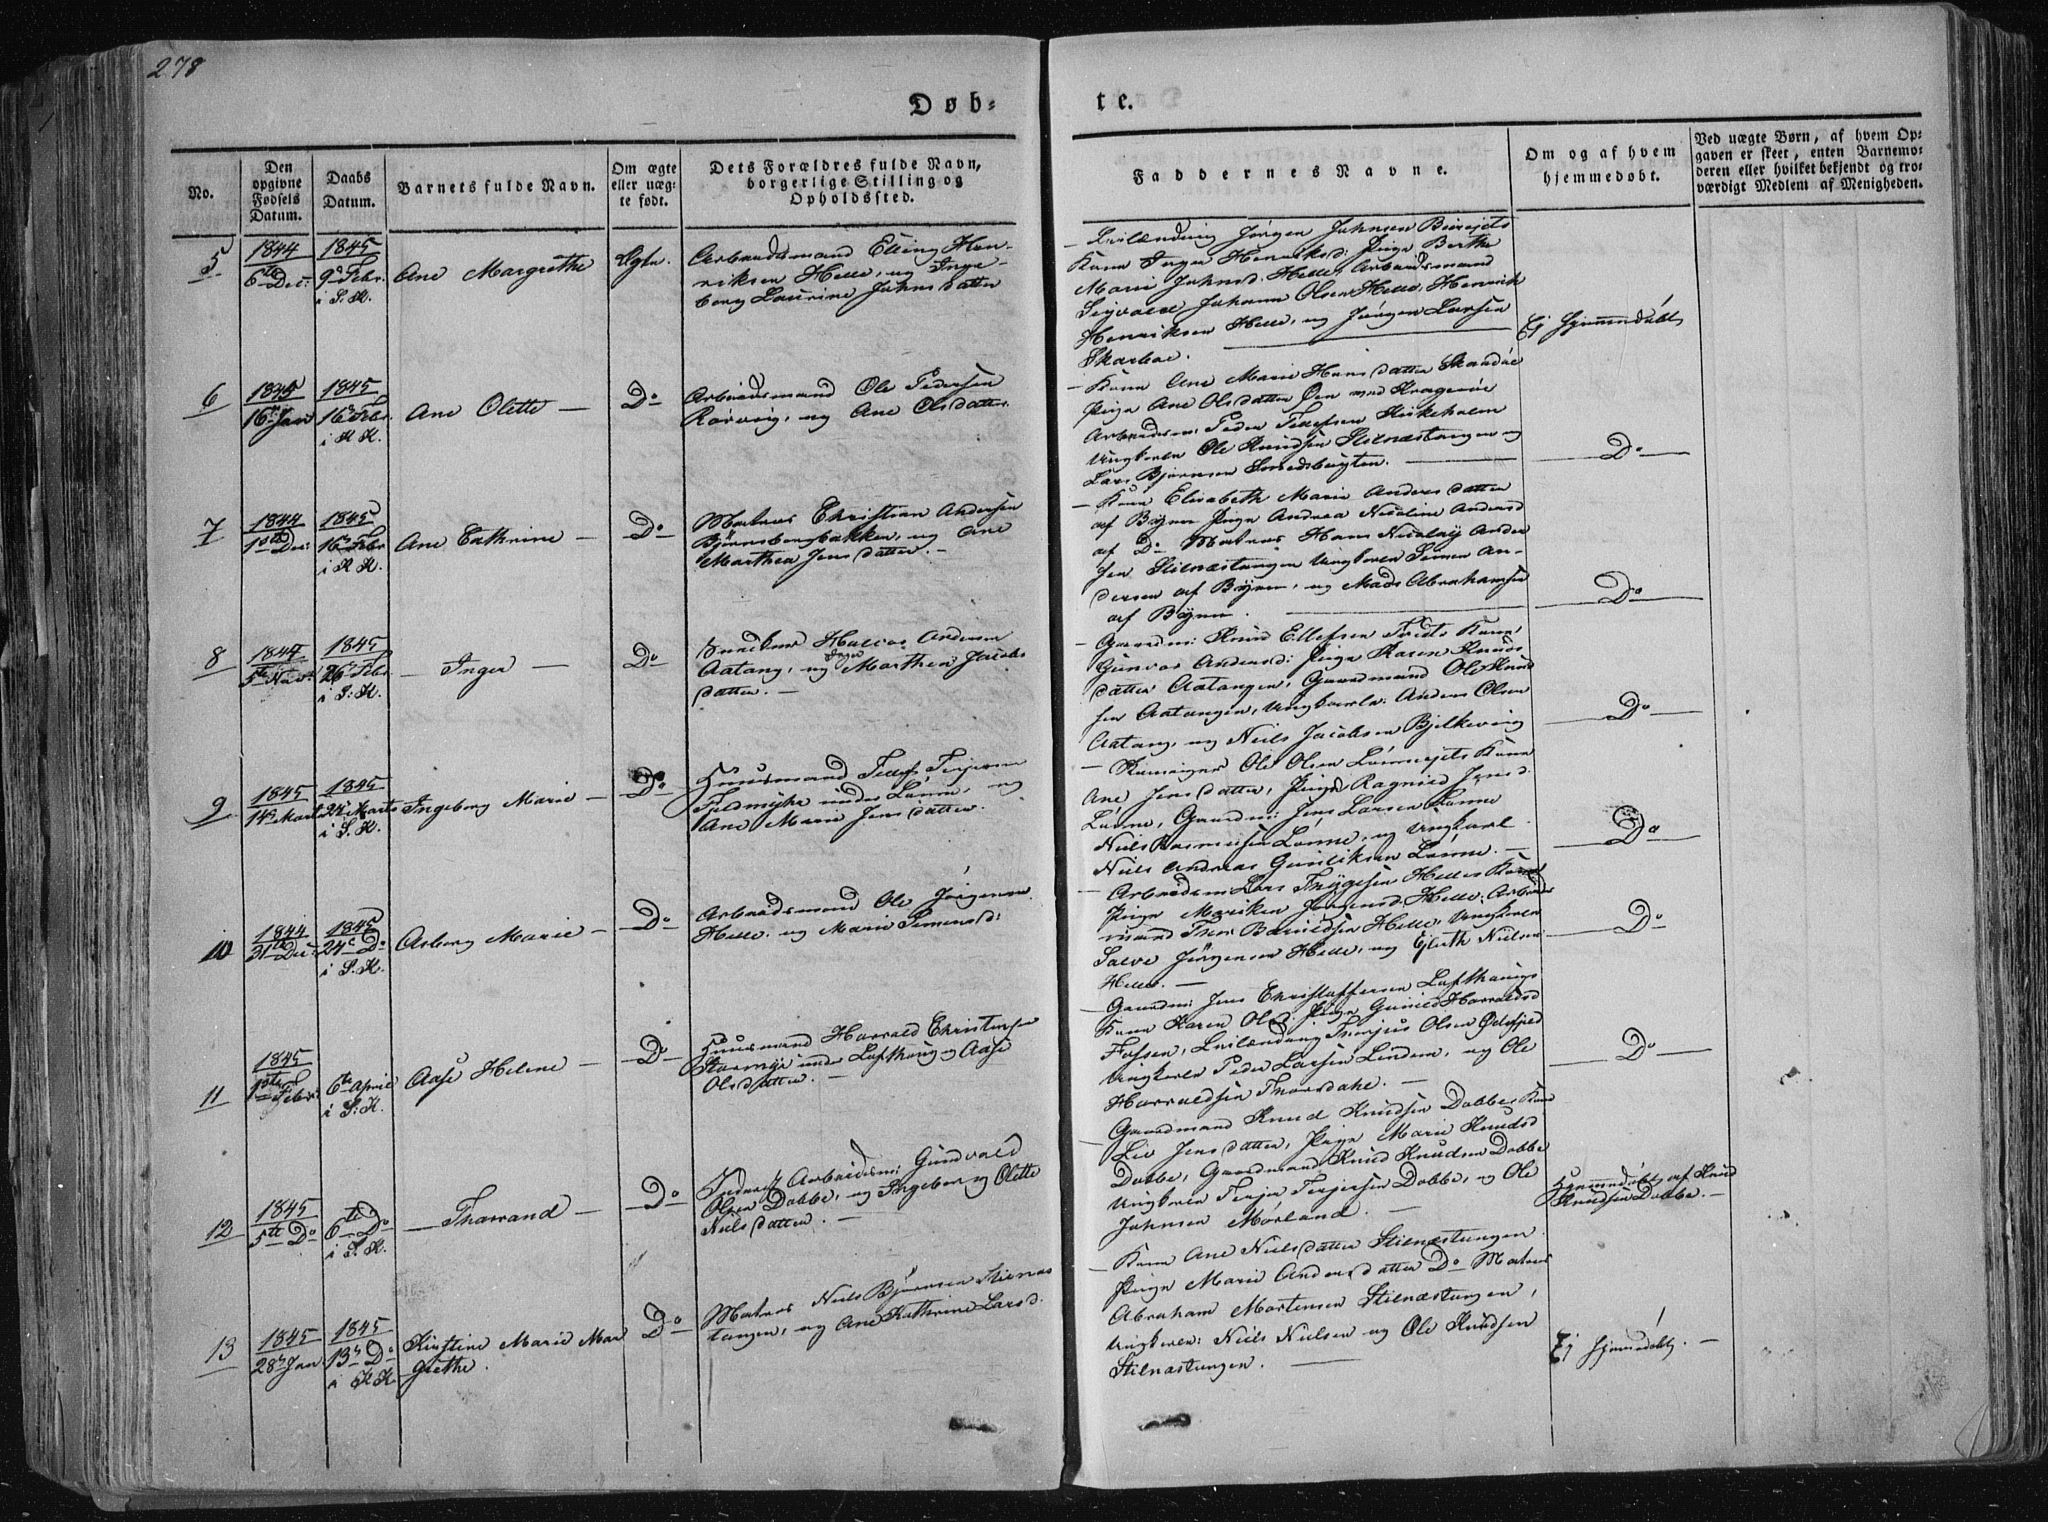 278
Døb-
te.
No.
Den opgivne Fødsels Datum.
Daabs Datum.
Barnets fulde Navn.
Om ægte eller uæg-te født.
Dets Forældres fulde Navn, borgerlige Stilling og Opholdssted.
Faddernes Navne.
Om og af hvem hjemmedøbt.
Ved uægte Børn, af hvem Op-
gaven er skeet, enten Barnemo-
deren eller hvilket bekjendt og tro-
værdigt Medlem af Menigheden.
5
1844
6te Dec:
1845
9de Febr.
i S. K.
Ane Margrethe
Ægte.
Arbeidsmand Elling Hen-
riksen Helle, og Inge-
borg Laurine Johnsdatter
Jørgen Johnsen
Kone Inger Henriksd: Pige Berthe
Marie Johnsd. Helle, Arbeidsmand
Sigvald Johann Olsen Helle, Henrik
Henriksen Helle, og Jørgen Larsen
Skarboe.
Ej hjemmedøbt
6
1845
16de Jan
1845
16de Febr.
i K K.
Ane Olette —
Do
Arbeidsmand Ole Pedersen
Rørvig, og Ane Olsdatter
— Kone Ane Marie Hansdatter Skaadøe
Pige Ane Olsdatter Øen ved Kragerøe
Arbeidsm: Peder Tellefsen Kirkeholm
Ungkarle Ole Knudsen Stilnæstangen og
Lars Bjørnsen Smedsbugten. —
Do
7
1844
1ste Dec:
1845
16de Febr
i K K.
Ane Cathrine —
Do
Matros Christian Andersen
Bjørnsborgbakken, og Ane
Marthea Jensdatter. —
— Kone Elisabeth Marie Andersdatter
af Byen Pige Andrea Nicoline Andersd
af Do Matros Hans Nicolay Ander
sen Stilnæstangen Ungkarle Simen An-
dersen af Byen, og Mads Abrahamsen
af Byen.
Do
8
1844
5te Nov:
1845
26de Febr.
i S. K.
— Inger —
Do
Halvor Andersen
Aatang, og Marthea Jacobs
datter. —
— Gaardm: Knud Ellefsen Kone
Gunvor Andersd: Pige Karen Knuds
datter Aatangen, Gaardmand Ole Knud
sen Aatangen, Ungkarle: Anders Olsen
Aatang, og Niels Jacobsen Bjelkevig
Do
9
1845
14de Marts
1845
24de Marts
i S. K.
Ingeborg Marie —
Do
Huusmand Tellef Terjesen
Feldmyhr under Lønne, og
Ane Marie Jensdatter.
Ole Olsen Kone
Ane Jensdatter, Pige Ragnild Jensd.
Lønne, Gaardm: Jens Larsen Lønne
Niels Rasmusen Lønne, og Ungkarl
Niels Andreas Guuliksen Lønne. —
Do
10
1844
31te Dec:
1845
24de Do
i S. K.
Asborg Marie —
Do
Arbeidsmand Ole Jørgensen
Helle. og Marie Simensd:
— Arbeidsm: Lars Trygesen Helles Kone
Pige Mariken Jørgensd. Helle. Arbeids
mand Thor Helle. Ungkarle
Salve Jørgensen Helle, og Gjeruth Nielsen
Helle. —
Do
11
1845
1ste Febr:
6te April
i S: K.
Aase Helene —
Do
Huusmand Harrald Christensen
Stormyr under Lofthaug og Aase
Olsdatter. —
Gaardm: Jens Christoffersen Lofthaugs
Kone Karen Olsd: Pige Gunild Harraldsd
Fossen, Terjus Olsen
Ungkarle Peder Larsen Linden, og Ole
Harraldsen Thorsdahl. —
Do
12
1845
5te Do
6te Do
i S. K.
— Tharrand —
Do
Arbeidsm: Gundvald
Olsen Dobbe, og Ingeborg Olette
Nielsdatter. —
Gaardmand Knud Knudsen Dobbes Kone
Liv Jensdatter, Pige Marie Knudsd
Dobbe, Gaardmand Knud Knudsen Dobbe
Ungkarle Terje Terjesen Dobbe, og Ole
Johnsen Mørland. —
Hjemmedøbt af Knud
Knudsen Dobbe. —
13
1845
28de Jan
1845
13de Do
i K K
Kirstine Marie Mar
grethe.
Do
Matros Niels Bjørnsen Stilnæs
tangen, og Ane Kathrine Larsd.
— Kone Ane Nielsdatter Stilnæstangen
Pige Marie Andersdatter Do Matros
Abraham Mortensen Stilnæstangen,
Ungkarle: Niels Nielsen og Ole Knudsen
Stilnæstangen. —
Ej hjemmedøbt. —